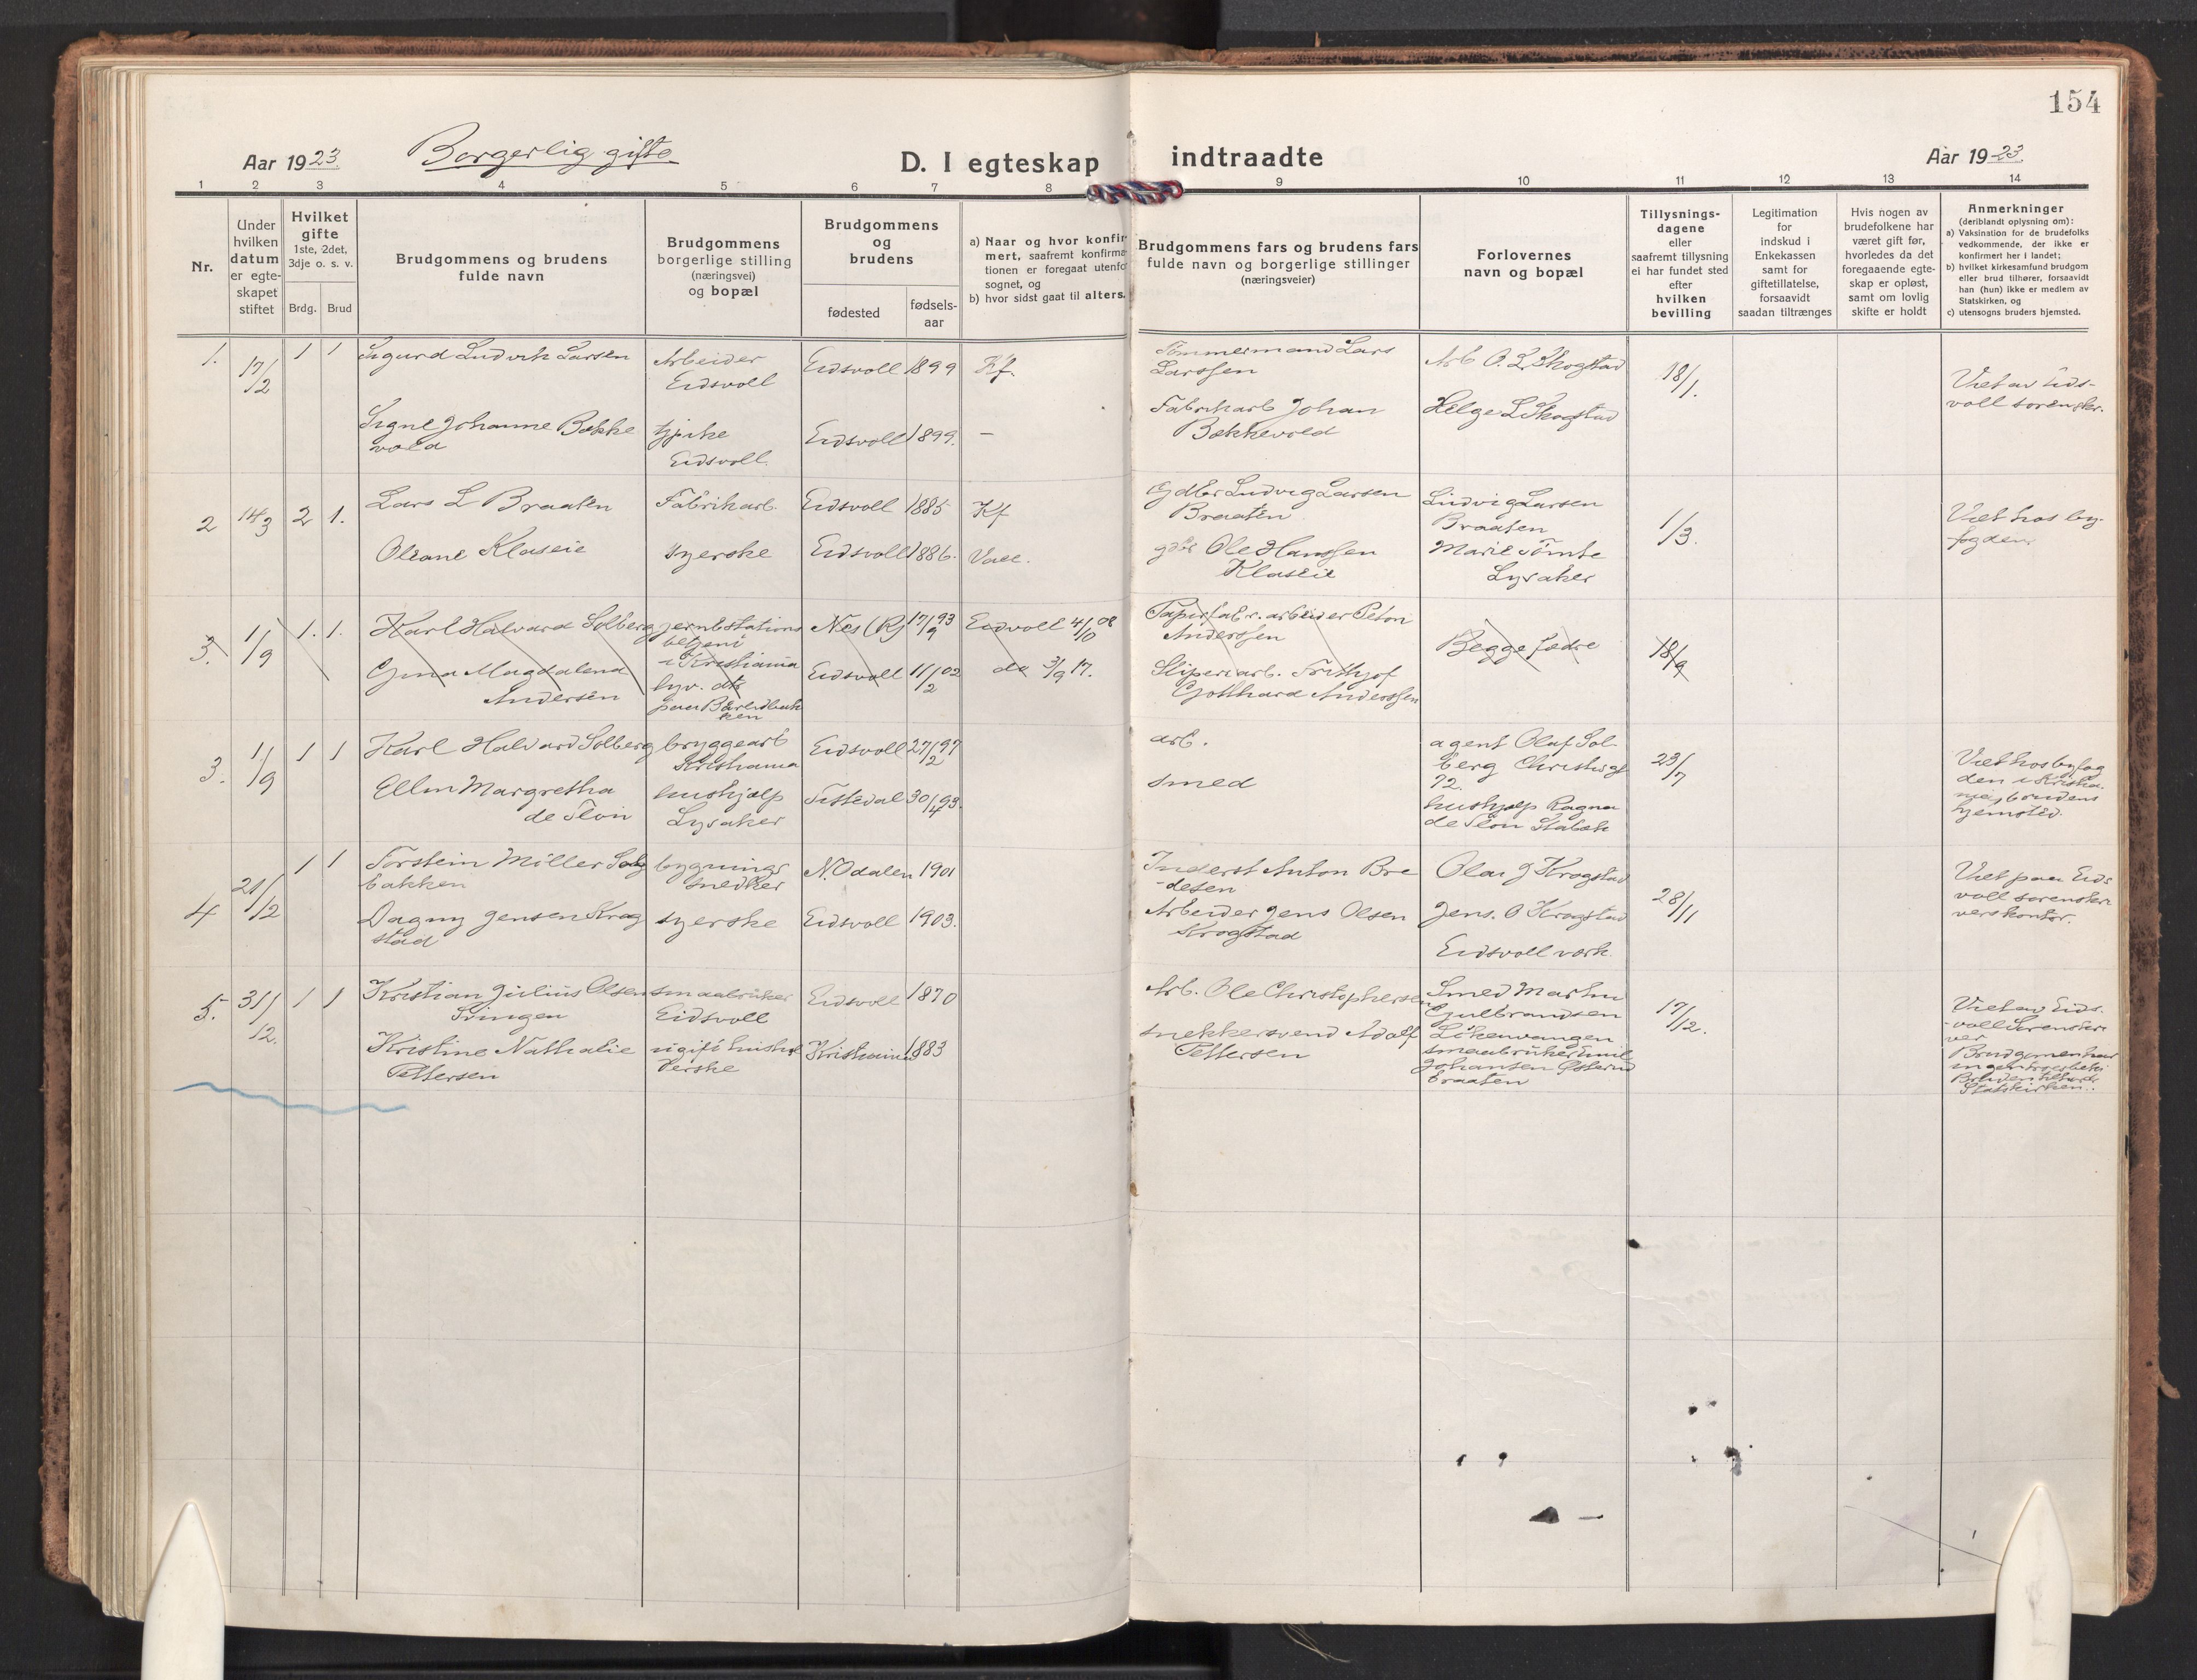 154
Aar 1923
Borgerlig gifte
D. I egteskap indtraadte
Aar 1923.
1 2 3 4 5 6 7 8 9 10 11 12 13 14
Nr.
Under
hvilken
datum
er egte-
skapet
stiftet
Hvilket
gifte
1ste, 2det,
3dje o. s. v.
Brdg. Brud
Brudgommens og brudens
fulde navn
Brudgommens
borgerlige stilling
(næringsvei)
og bopæl
Brudgommens
og
brudens
fødested
fødsels-
aar
a) Naar og hvor konfir
mert, saafremt konfirma
tionen er foregaat utenfo
sognet, og
b) hvor sidst gaat til alters.
Brudgommens fars og brudens fars
fulde navn og borgerlige stillinger
(næringsveier)
Forlovernes
navn og bopæl
Tillysnings-
dagene
eller
saafremt tillysning
ei har fundet sted
efter
hvilken
bevilling
Legitimation
for
indskud i
Enkekassen
samt for
giftetillatelse,
forsaavidt
saadan tiltrænges
Hvis nogen av
brudefolkene har
været gift før,
hvorledes da det
foregaaende egte-
skap er opløst,
samt om lovlig
skifte er holdt
Anmerkninger
(deriblandt oplysning om):
a) Vaksination for de brudefolks
vedkommende, der ikke er
konfirmert her i landet;
b) hvilket kirkesamfund brudgom
eller brud tilhører, forsaavidt
han (hun) ikke er medlem av
Statskirken, og
c) utensogns bruders hjemsted.
1.
17/2
1 1
Sigurd Ludvik Larsen
Arbeider
Eidsvoll
Eidsvoll 1899
Kf.
Tømmermand Lars
Larssen
Arb O. L. Skogstad
18/1.
Viet av Eids-
voll sorenskr.
Signe Johanne Bække
vold
Eidsvoll.
Eidsvoll 1899.
—
Fabrikarb Johan
Bækkevold
Helge L Skogstad
2
14/3
2 1.
Lars L Braaten
Fabrikarb.
Eidsvoll 1885
Kf
Gdbr Ludvig Larsen
Braaten
Ludvig Larsen
Braaten
1/3.
Viet hos by-
fogden.
Oleane Klaseie
syerske
Eidsvoll 1886.
gdbr Ole Hanssen
Klaseie
Marie Tömte
Lysaker
3.
1/9
1. 1.
Karl Halvard Solberg
jernbstations
betjent
i Kristiania
Nes (R) 17/9 93
Eidsvoll 4/10 08
Papirfabr. arbeider
Anderssen
Begge fædre
18/9
Gina Magdalena
Andersen
Eidsvoll 11/2 02
do 3/9 17.
Sliperiarb. Frithjof
Gotthard Anderssen
3.
1/9
1 1
Karl Halvard Solberg
bryggearb
Kristiania
Eidsvoll 27/2 97
arb.
agent Olaf Sol-
berg
72.
23/7
Viet hos byfog
den i Kristia-
nia, brudens
hjemsted.
Ellen Margretha
de Flon
hushjælp
Lysaker
Tistedal 30/4 93.
smed
hushjælp Ragna
de Flon Stabæk
4
21/12
1 1
Torstein Möller
bakken
bygnings
snedker
N. Odalen 1901
Inderst Anton Bre
-desen
Olai J Krogstad
28/11
Viet paa Eids
voll sorenskri
verskontor.
Dagny Jensen Krog
stad
syerske
Eidsvoll 1903.
Arbeider Jens Olsen
Krogstad
Jens. O Krogstad
Eidsvoll værk.
5.
31/12.
1 1
Kristian Julius Olsen
Svingen
smaabruker
Eidsvoll
Eidsvoll 1870
Arb. Ole Christophersen
Smed Martin
Gulbrandsen
17/12.
Viet av Eids-
voll Sorenskri
ver
Kristine Nathalie
Pettersen
ugift hushol
derske
Kristiania 1883
snekkersvend Adolf
Pettersen
smaabruker Emil
Johansen Österud
Braaten
Statskirken.